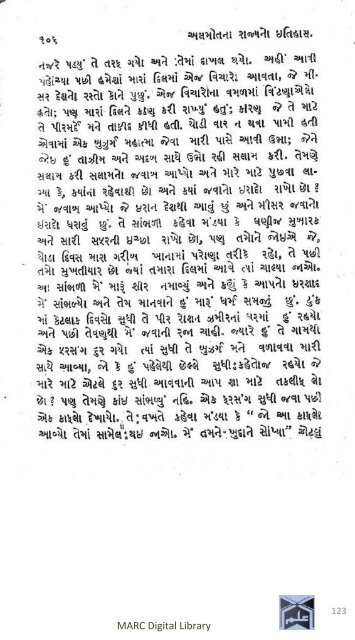 ૧૦૬ અલમોતના રાજ્યનો ઇતિહાસ.
નજરે પડયું તે તરફ ગયો અને તેમાં દાખલ થયો. અહીં આવી
પહોંચ્યા પછી હમેશાં મારાં દિલમાં એજ વિચારો આવતા, જે મી-
સર દેશનો રસ્તો કોને પુછું. એજ વિચારોના વમળમાં વિંટળાએલો
હતો; પણ મારાં દિલને કઠણ કરી રાખ્યું હતું; કારણ જે તે માટે
તે પીરમર્દે મને તાકીદ કીધી હતી. થોડી વાર ન થવા પામી હતી
એવામાં એક બુઝર્ગ મહાત્મા જેવા મારી પાસે આવી ઉભા; જેને
જોઇ હું તાઝીમ અને અદબ સાથે ઉભો રહી સલામ કરી. તેમણે
સલામ કરી સલામનો જવાબ આપ્યો અને મારે માટે પુછવા લા-
ગ્યા કે, ક્યાંના રહેવાશી છો અને ક્યાં જવાનો ઇરાદો રાખો છો ?
મેં જવાબ આપ્યો જે ઇરાન દેશથી આવું છું અને મીસર જવાનો
ઇરાદો ધરાવું છું. તે સાંભળી કહેવા મંડયા કે ઘણીજ મુબારક
અને સારી સફરની ઇચ્છા રાખો છો, પણ તમોને જોઇએ જે,
થોડા દિવસ મારા ગરીબ ખાનામાં પરોણા તરીકે રહો, તે પછી
તમો મુખતીયાર છો જ્યાં તમારા દિલમાં આવે ત્યાં ચાલ્યા જાઓ.
આ સાંભળી મેં મારૂં શીર નમાવ્યું અને કહ્યું કે આપનો ઇરશાદ
મેં સાંભલ્યો અને તેમ માનવાને હું મારૂં ધર્મ સમજું છું. ટુંક
માં કેટલાક દિવસો સુધી તે પીર રોશન ઝમીરનાં ઘરમાં હું રહયો
અને પછી તેવણથી મેં જવાની રજા ચાહી. જ્યારે હું તે ગામથી
એક ફરસંગ દુર ગયો ત્યાં સુધી તે બુઝર્ગ મને વળાવવા મારી
સાથે આવ્યા, જો કે હું પહેલેથી છેલ્લે સુધી કહેતોજ રહયો જે
મારે માટે એટલે દુર સુધી આવવાની આપ શા માટે તકલીફ લો
છો ? પણ તેમણે કાંઇ સાંભળ્યું નહિ. એક ફરસંગ સુધી જવા પછી
એક કાફલો દેખાયો. તે વખતે કહેવા મંડયા કે “ જો આ કાફલો
આવ્યો તેમાં સામેલ થઇ જાઓ. મેં તમને ખુદાને સોંપ્યા” એટલું
123
MARC Digital Library